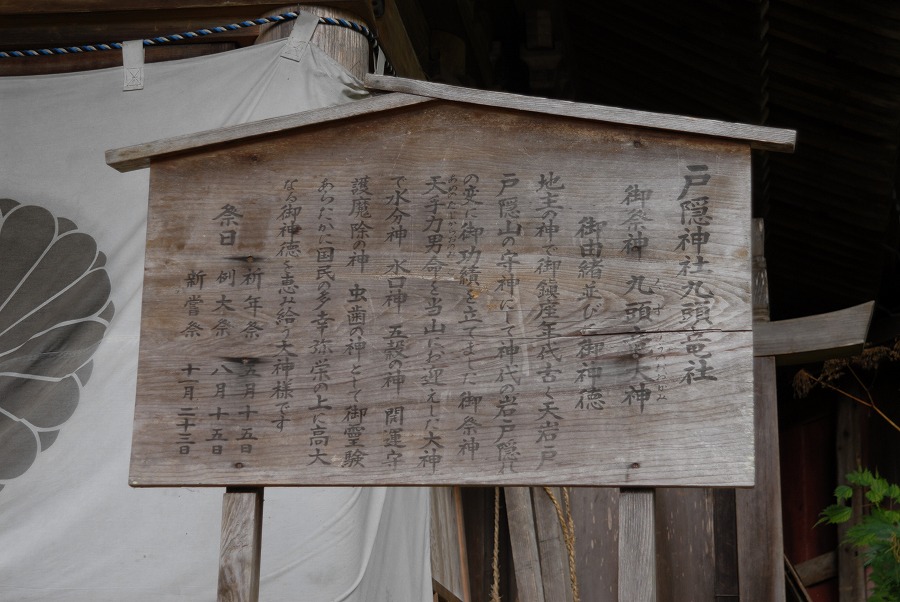 戸隠神社九頭竜社
御祭神 九頭竜大神
御由緒並びに御神徳
地主の神で御鎮座年代古く天岩戸
戸隠山の守神にして神代の岩戸隠れ
の変に御功績を立てました御祭神
天手力男命を当山にお迎えした大神
で水分神 水口神 五穀の神 開運守
護魔除の神 虫歯の神として御霊験
あらたかに国民の多幸弥栄の上に高大
なる御神徳を恵み給う大神様です
祭日
祈年祭 月十五日
例大祭 八月十五日
新嘗祭 十一月二十三日